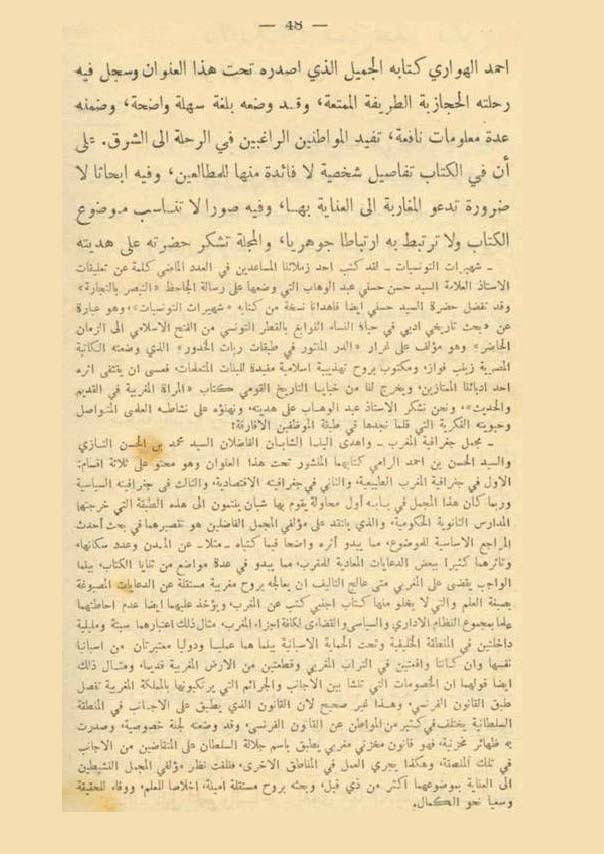 — 48 —
احمد الهواري كتابه الجميل الذي اصدره تحت هذا العنوان وسجل فيه
رحلته الحجازية الطريفة الممتعة، وقد وضعه بلغة سهلة واضحة، وضمنه
عدة معلومات نافعة، تفيد المواطنين الراغبين في الرحلة الى الشرق. على
أن في الكتاب تفاصيل شخصية لا فائدة منها للمطالعين، وفيه ابحاثا لا
ضرورة تدعو المغاربة الى العناية بها، وفيه صورا لا تناسب موضوع
الكتاب ولا ترتبط به ارتباطا جوهريا، والمجلة تشكر حضرته على هديته
ـ شهيرات التونسيات ـ لقد كتب احد زملائنا المساعدين في العدد الماضي كلمة عن تعليقات
الاستاذ العلامة السيد حسن حسني عبد الوهاب التي وضعها على رسالة الجاحظ «التبصر بالتجارة»
وقد تفضل حضرة السيد حسني ايضا فاهدانا نسخة من كتابه «شهيرات التونسيات»، وهو عبارة
عن «بحث تاريخي ادبي في حياة النساء النوابغ بالقطر التونسي من الفتح الاسلامي الى الزمان
الحاضر» وهو مؤلف على غرار «الدر المنثور في طبقات ربات الخدور» الذي وضعته الكاتبة
المصرية زينب فواز، ومكتوب بروح تهذيبية اسلامية مفيدة للبنات المتعلمات، فعسى ان يقتفى اثره
احد ادبائنا الممتازين، ويخرج لنا من خبايا التاريخ القومي كتاب «المرأة المغربية في القديم
والحديث»، ونحن نشكر الاستاذ عبد الوهاب على هديته، ونهنؤه على نشاطه العلمي المتواصل
وحيويته الفكرية التي قلما نجدها في طبقة الموظفين الافارقة!
ـ مجمل جغرافية المغرب ـ واهدى الينا الشابان الفاضلان السيد محمد بن الحسن التازي
والسيد الحسن بن احمد الرامي كتابهما المنشور تحت هذا العنوان وهو محتو على ثلاثة اقسام:
الاول في جغرافية المغرب الطبيعية، والثاني في جغرافيته الاقتصادية، والثالث في جغرافيته السياسية
وربما كان هذا المجمل في بابه أول محاولة يقوم بها شبان ينتمون الى هذه الطبقة التي خرجتها
المدارس الثانوية الحكومية، والذي ينتقد على مؤلفي المجمل الفاضلين هو تقصيرهما في بحث أحدث
المراجع الاساسية للموضوع، مما يبدو أثره واضحا فيما كتباه ـ مثلا ـ عن المدن وعدد سكانها،
وتاثرهما كثيرا ببعض الدعايات المعادية للمغرب، مما يبدو في عدة مواضع من ثنايا الكتاب، بينما
الواجب يقضى على المغربي متى عالج التاليف ان يعالجه بروح مغربية مستقلة عن الدعايات المصبوغة
بصبغة العلم والتي لا يخلو منها كتاب اجنبي كتب عن المغرب، ويؤخذ عليهما ايضا عدم احاطتهما
بمجموع النظام الاداري والسياسي والقضاءى لكافة اجزاء المغرب، مثال ذلك اعتبارهما سبتة ومليلية
داخلتين في المنطقة الخليفية وتحت الحماية الاسبانية بينما هما عمليا ودوليا معتبرتان من اسبانيا
نفسها وان كانتا واقعتين في التراب المغربي وقطعتين من الارض المغربية قديما، ومثال ذلك
ايضا قولهما ان الخصومات التي تنشا بين الاجانب والجرائم التي يرتكبونها بالمملكة المغربية تفصل
طبق القانون الفرنسي، وهذا غير صحيح لان القانون الذي يطبق على الاجانب في المنطقة
السلطانية يختلف في كثير من المواطن عن القانون الفرنسي، وقد وضعته لجنة خصوصية، وصدرت
به ظهائر مخزنية، فهو قانون مخزني مغربي يطبق باسم جلالة السلطان على المتقاضين من الاجانب
في تلك المنطقة، وهكذا يجري العمل في المناطق الاخرى، فنلفت نظر مؤلفي المجمل النشيطين
الى العناية بموضوعهما أكثر من ذي قبل، وبحثه بروح مستقلة امينة، اخلاصا للعلم، ووفاء للحقيقة
وسعيا نحو الكمال.